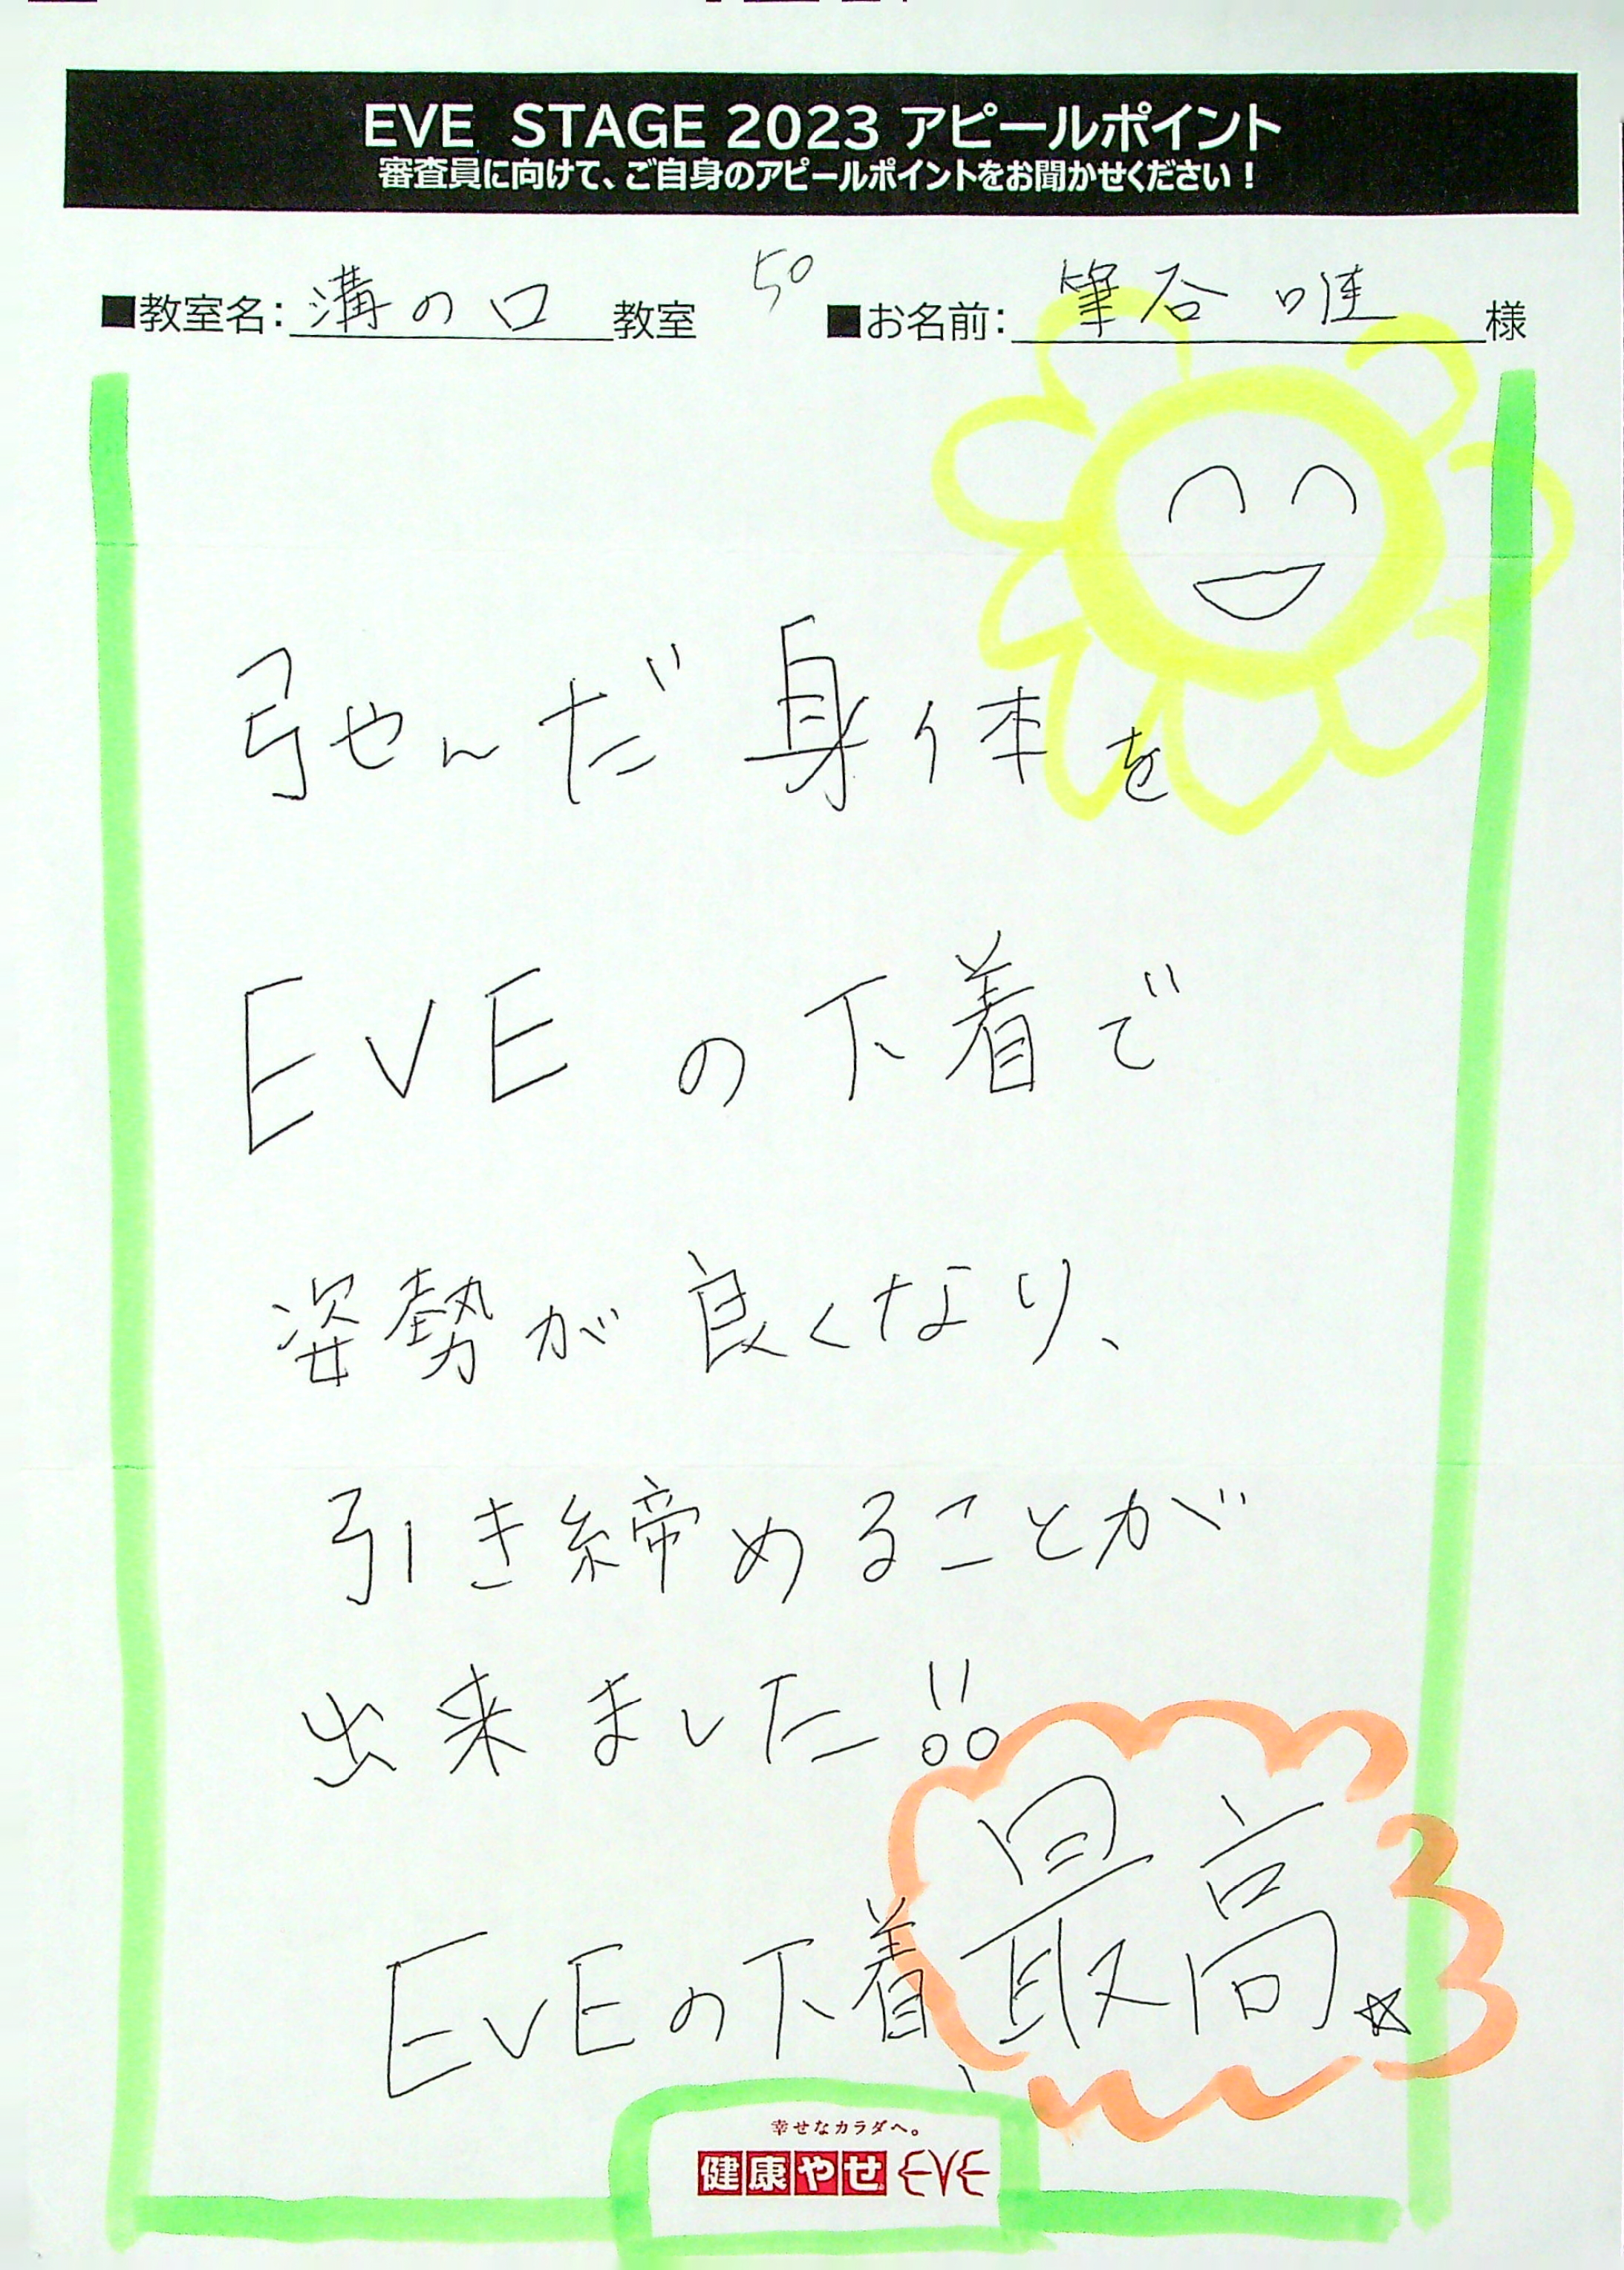 EVE STAGE 2023 アピールポイント
審査員に向けて、ご自身のアピールポイントをお聞かせください！
■教室名：溝の口教室 50 ■お名前：筆谷 唯 様
弛んだ身体を
EVEの下着で
姿勢が良くなり、
引き締めることが
出来ました!!
EVEの下着、最高☆
幸せなカラダへ。
健康やせ EVE